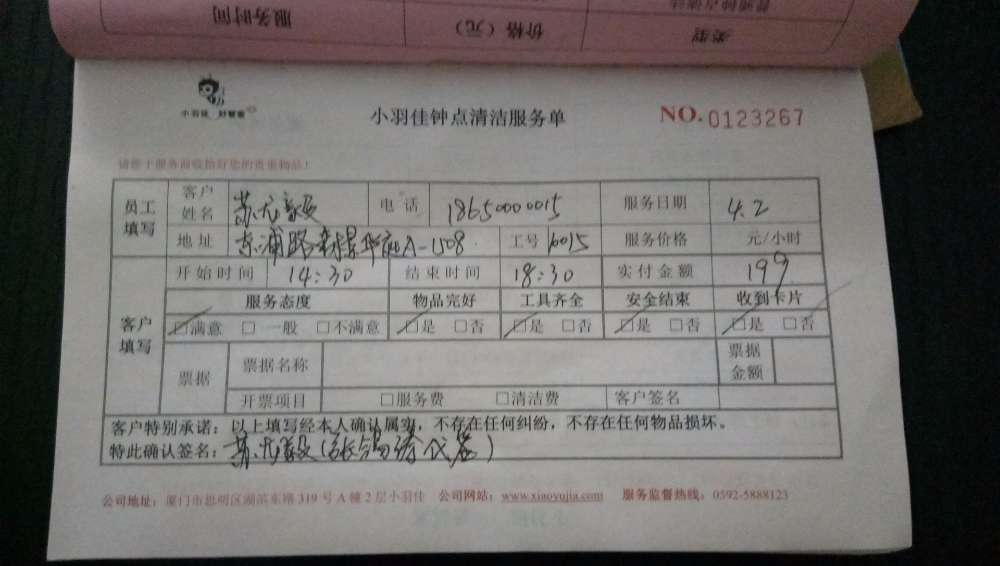 服务时间 价格（元） 类型
小羽佳 好管家
小羽佳钟点清洁服务单
NO. 0123267
请您于服务前收拾好您的贵重物品！
员工填写 客户姓名 苏尤毅 电话 18650000015 服务日期 4.2
地址 东浦路 A-508 工号 6015 服务价格 元/小时
客户填写 开始时间 14:30 结束时间 18:30 实付金额 199
服务态度 物品完好 工具齐全 安全结束 收到卡片
□满意 □一般 □不满意 □是 □否 □是 □否 □是 □否 □是 □否
票据 票据名称 票据金额
开票项目 □服务费 □清洁费 客户签名
客户特别承诺：以上填写经本人确认属实，不存在任何纠纷，不存在任何物品损坏。
特此确认签名：苏尤毅（张 代签）
公司地址：厦门市思明区湖滨东路 319 号 A 幢 2 层小羽佳 公司网站：www.xiaoyujia.com 服务监督热线：0592-5888123